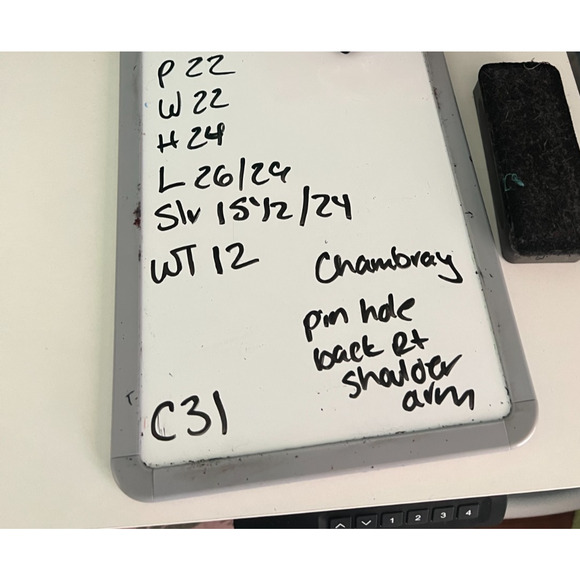 P 22
W 22
H 24
L 26/29
Slv 15 1/2 /24
WT 12
Chambray
pin hole
back Rt
shoulder
arm
C31
1 2 3 4